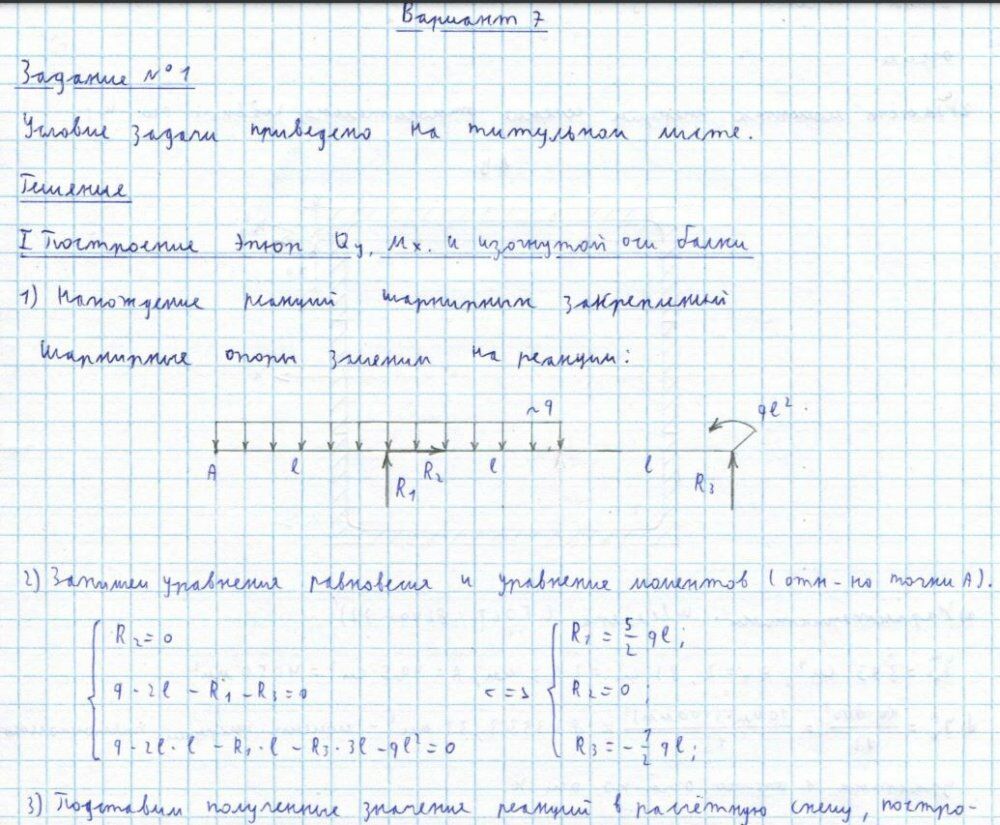 Вариант 7
Задание №1
Условие задачи приведено на титульном листе.
Решение
I Построение эпюр Qy, Mx. и изогнутой оси балки
1) Нахождение реакций шарнирных закреплений
Шарнирные опоры заменим на реакции:
~q
ql²
A
l
R₂
l
l
R₁
R₃
2) Запишем уравнения равновесия и уравнение моментов (отн-но точки A).
R₂ = 0
q · 2l - R₁ - R₃ = 0
q · 2l · l - R₁ · l - R₃ · 3l - ql² = 0
<=>
R₁ = 5/2 ql;
R₂ = 0;
R₃ = - 1/2 ql;
3) Подставим полученные значения реакций в расчётную схему, постро-